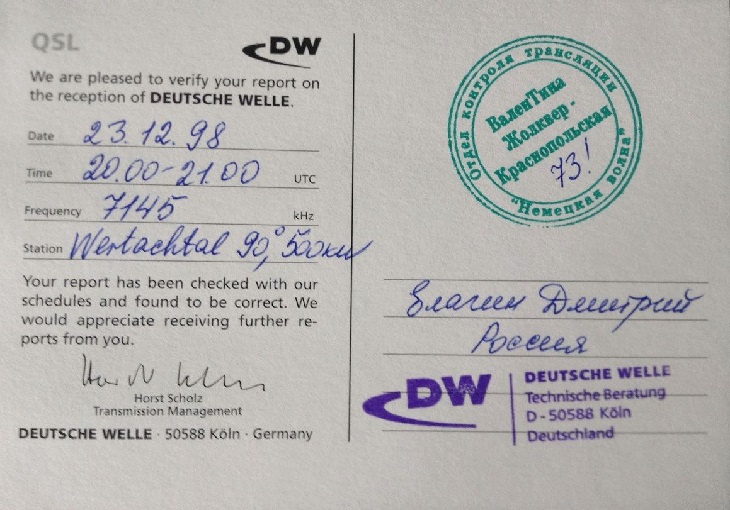 QSL
DW
We are pleased to verify your report on
the reception of DEUTSCHE WELLE.
Date 23.12.98
Time 20.00-21.00 UTC
Frequency 7145 kHz
Station Wertachtal 90°, 500кW
Your report has been checked with our
schedules and found to be correct. We
would appreciate receiving further re-
ports from you.
Horst Scholz
Transmission Management
DEUTSCHE WELLE · 50588 Köln · Germany
Отдел контроля трансляции
ВаленТина
Жолквер -
Краснопольская
73!
"Немецкая волна"
Елагин Дмитрий
Россия
DW
DEUTSCHE WELLE
Technische Beratung
D - 50588 Köln
Deutschland